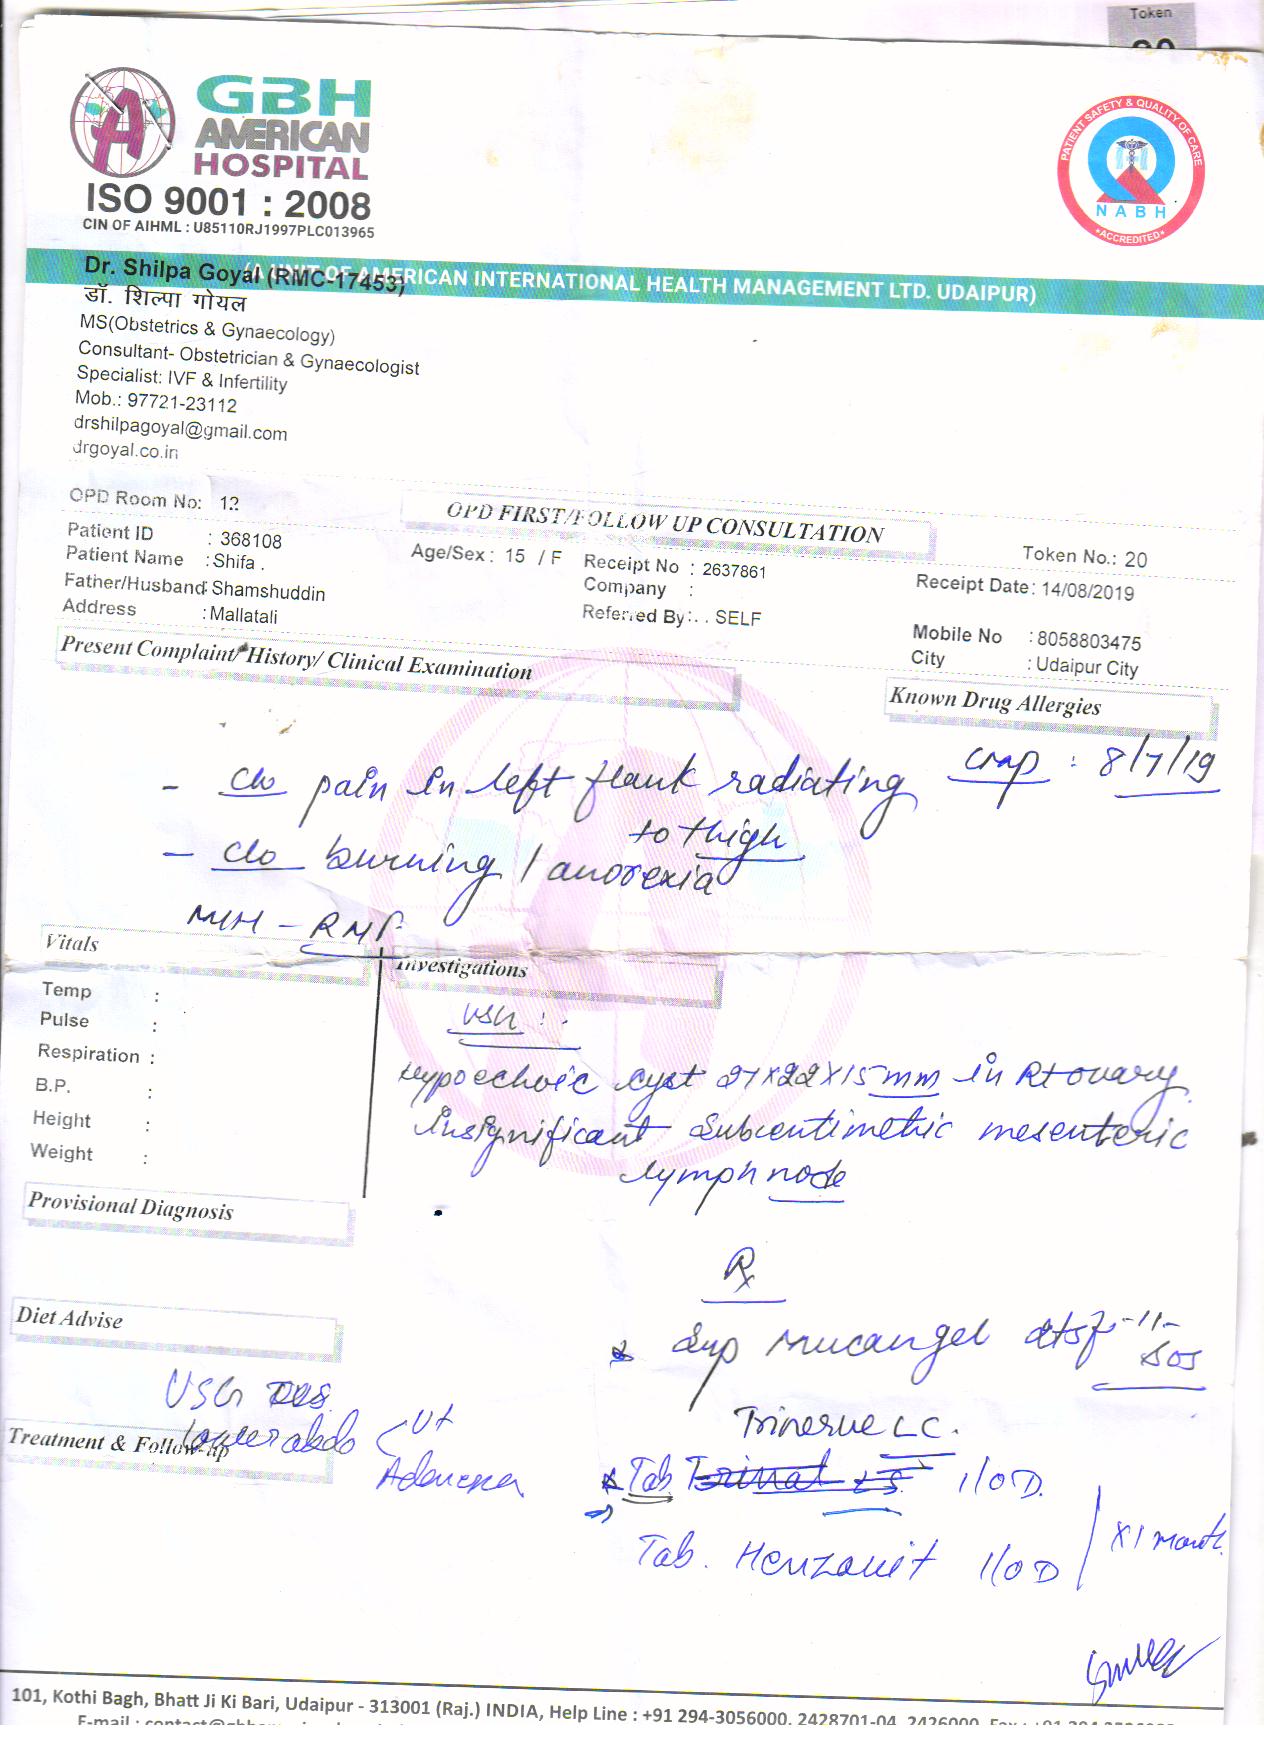 Token
GBH
AMERICAN
HOSPITAL
ISO 9001 : 2008
CIN OF AIHML : U85110RJ1997PLC013965
PATIENT SAFETY & QUALITY OF CARE
NABH
ACCREDITED
(A UNIT OF AMERICAN INTERNATIONAL HEALTH MANAGEMENT LTD. UDAIPUR)
Dr. Shilpa Goyal (RMC-17453)
डॉ. शिल्पा गोयल
MS(Obstetrics & Gynaecology)
Consultant- Obstetrician & Gynaecologist
Specialist: IVF & Infertility
Mob.: 97721-23112
drshilpagoyal@gmail.com
drgoyal.co.in
OPD Room No: 12
OPD FIRST/FOLLOW UP CONSULTATION
Token No.: 20
Patient ID : 368108
Age/Sex : 15 / F
Receipt No : 2637861
Receipt Date: 14/08/2019
Patient Name : Shifa .
Company :
Father/Husband: Shamshuddin
Referred By: . . SELF
Mobile No : 8058803475
Address : Mallatali
City : Udaipur City
Present Complaint/ History/ Clinical Examination
Known Drug Allergies
- c/o pain in left flank radiating
to thigh
: 8/7/19
- c/o burning / anorexia
M/H -
Vitals
Investigations
Temp :
Pulse :
Respiration :
B.P. :
Height :
Weight :
USG :-
Hypoechoic cyst 27x22x15 mm in Rt ovary
Insignificant subcentimetric mesenteric
lymph node
Provisional Diagnosis
Rx
Diet Advise
Syp Mucangel 2tsf -11-
SOS
USG
lower abdo
Ut
Adenexa
Treatment & Follow-up
Trinerve LC.
Tab 1/OD
Tab. 1/OD
x 1 month
101, Kothi Bagh, Bhatt Ji Ki Bari, Udaipur - 313001 (Raj.) INDIA, Help Line : +91 294-3056000, 2428701-04, 2426000,